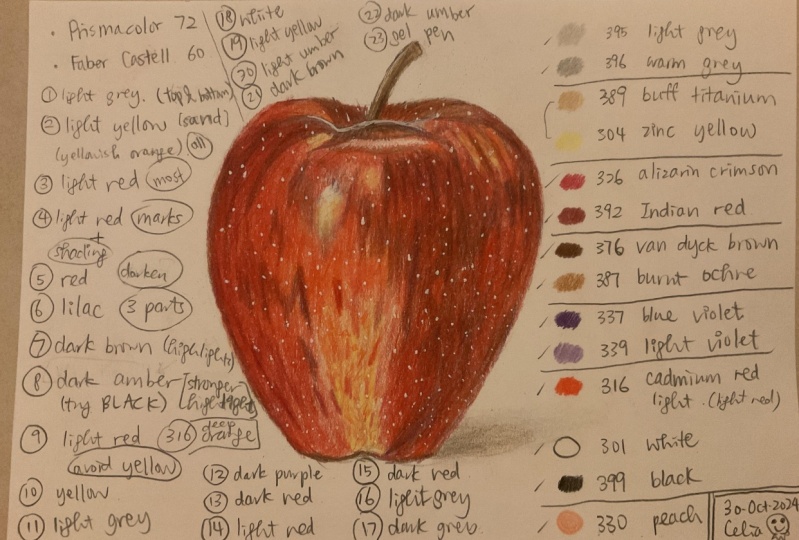 • Prismacolor 72
• Faber Castell 60
① light grey. (top & bottom)
② light yellow (sand)
(yellowish orange) all
③ light red most
④ light red marks
+
shading
⑤ red darken
⑥ lilac 3 parts
⑦ dark brown (highlights)
⑧ dark amber [stronger
(try BLACK) highlights]
⑨ light red 316 deep orange
avoid yellow
⑩ yellow
⑪ light grey
⑫ dark purple
⑬ dark red
⑭ light red
⑮ dark red
⑯ light grey
⑰ dark grey.
⑱ white
⑲ light yellow
⑳ light umber
㉑ dark brown
㉒ dark umber
㉓ gel pen
395 light grey
396 warm grey
389 buff titanium
304 zinc yellow
326 alizarin crimson
392 Indian red
376 van dyck brown
387 burnt ochre
337 blue violet
339 light violet
316 cadmium red
light. (light red)
301 white
399 black
330 peach
30-Oct-2024
Celia